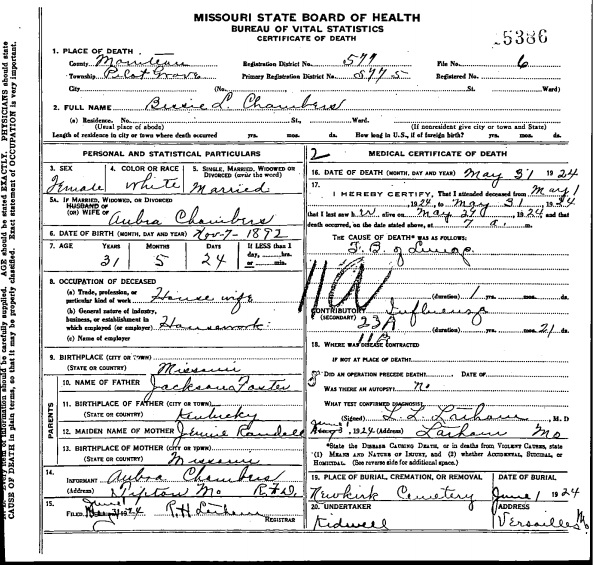 MISSOURI STATE BOARD OF HEALTH
BUREAU OF VITAL STATISTICS
CERTIFICATE OF DEATH
1. PLACE OF DEATH
County Moniteau Registration District No. 577 File No. 6
Township Pilot Grove Primary Registration District No. 5775 Registered No.
City (No. St. Ward)
2. FULL NAME Bessie L. Chambers
(a) Residence. No. St., Ward.
(Usual place of abode) (If nonresident give city or town and State)
Length of residence in city or town where death occurred yrs. mos. ds. How long in U.S., if of foreign birth? yrs. mos. ds.
PERSONAL AND STATISTICAL PARTICULARS
3. SEX Female
4. COLOR OR RACE White
5. SINGLE, MARRIED, WIDOWED OR DIVORCED (write the word) Married
5A. IF MARRIED, WIDOWED, OR DIVORCED
HUSBAND OF
(OR) WIFE OF Aubra Chambers
6. DATE OF BIRTH (MONTH, DAY AND YEAR) Nov-7-1892
7. AGE YEARS MONTHS DAYS If LESS than 1 day, hrs. or min.
31 5 24
8. OCCUPATION OF DECEASED
(a) Trade, profession, or
particular kind of work House wife
(b) General nature of industry,
business, or establishment in
which employed (or employer) Housework
(c) Name of employer
9. BIRTHPLACE (CITY OR TOWN)
(STATE OR COUNTRY) Missouri
PARENTS
10. NAME OF FATHER Jackson Foster
11. BIRTHPLACE OF FATHER (CITY OR TOWN)
(STATE OR COUNTRY) Kentucky
12. MAIDEN NAME OF MOTHER Jennie Randall
13. BIRTHPLACE OF MOTHER (CITY OR TOWN)
(STATE OR COUNTRY) Missouri
14.
INFORMANT Aubra Chambers
(Address) Tipton Mo R.F.D.
15.
FILED June 1 1924 R.H. Latham
REGISTRAR
2 MEDICAL CERTIFICATE OF DEATH
16. DATE OF DEATH (MONTH, DAY AND YEAR) May 31 1924
17.
I HEREBY CERTIFY, That I attended deceased from May 1
, 1924, to May 31, 1924
that I last saw h alive on May 29, 1924 and that
death occurred, on the date stated above, at 7 a. m.
THE CAUSE OF DEATH* WAS AS FOLLOWS:
T. B. of Lungs
11A
(duration) 1 yrs. mos. ds.
CONTRIBUTORY Influenza
(SECONDARY) 23A
(duration) yrs. mos. 21 ds.
11B
18. WHERE WAS DISEASE CONTRACTED
IF NOT AT PLACE OF DEATH
DID AN OPERATION PRECEDE DEATH? DATE OF
WAS THERE AN AUTOPSY? no
WHAT TEST CONFIRMED DIAGNOSIS?
(Signed) L. L. Latham, M. D
June 1, 1924 (Address) Latham Mo
*State the DISEASE CAUSING DEATH, or in deaths from VIOLENT CAUSES, state
(1) MEANS AND NATURE OF INJURY, and (2) whether ACCIDENTAL, SUICIDAL, or
HOMICIDAL. (See reverse side for additional space.)
19. PLACE OF BURIAL, CREMATION, OR REMOVAL DATE OF BURIAL
Newkirk Cemetery June 1 1924
20. UNDERTAKER ADDRESS
Kidwell Versailles Mo
15386
information should be carefully supplied. AGE should be stated EXACTLY. PHYSICIANS should state
CAUSE OF DEATH in plain terms, so that it may be properly classified. Exact statement of OCCUPATION is very important.